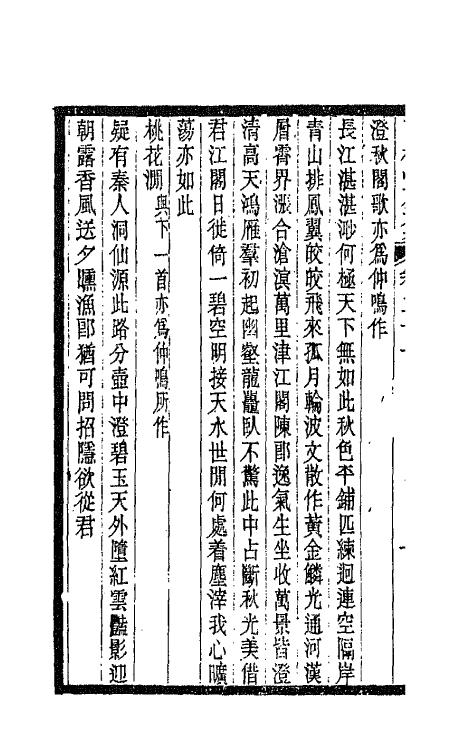 澄秋閣歌亦爲仲鳴作
長江湛湛渺何極天下無如此秋色平鋪匹練迥連空隔岸
青山排鳳翼皎皎飛來孤月輪波文散作黃金鱗光通河漢
層霄界漲合滄溟萬里津江閣陳郎逸氣生坐收萬景皆澄
清高天鴻雁羣初起幽壑龍鼉臥不驚此中占斷秋光美借
君江閣日徙倚一碧空明接天水世閒何處着塵滓我心曠
蕩亦如此
桃花澗與下一首亦爲仲鳴所作
疑有秦人洞仙源此路分壺中澄碧玉天外墮紅雲豔影迎
朝露香風送夕曛漁郎猶可問招隱欲從君